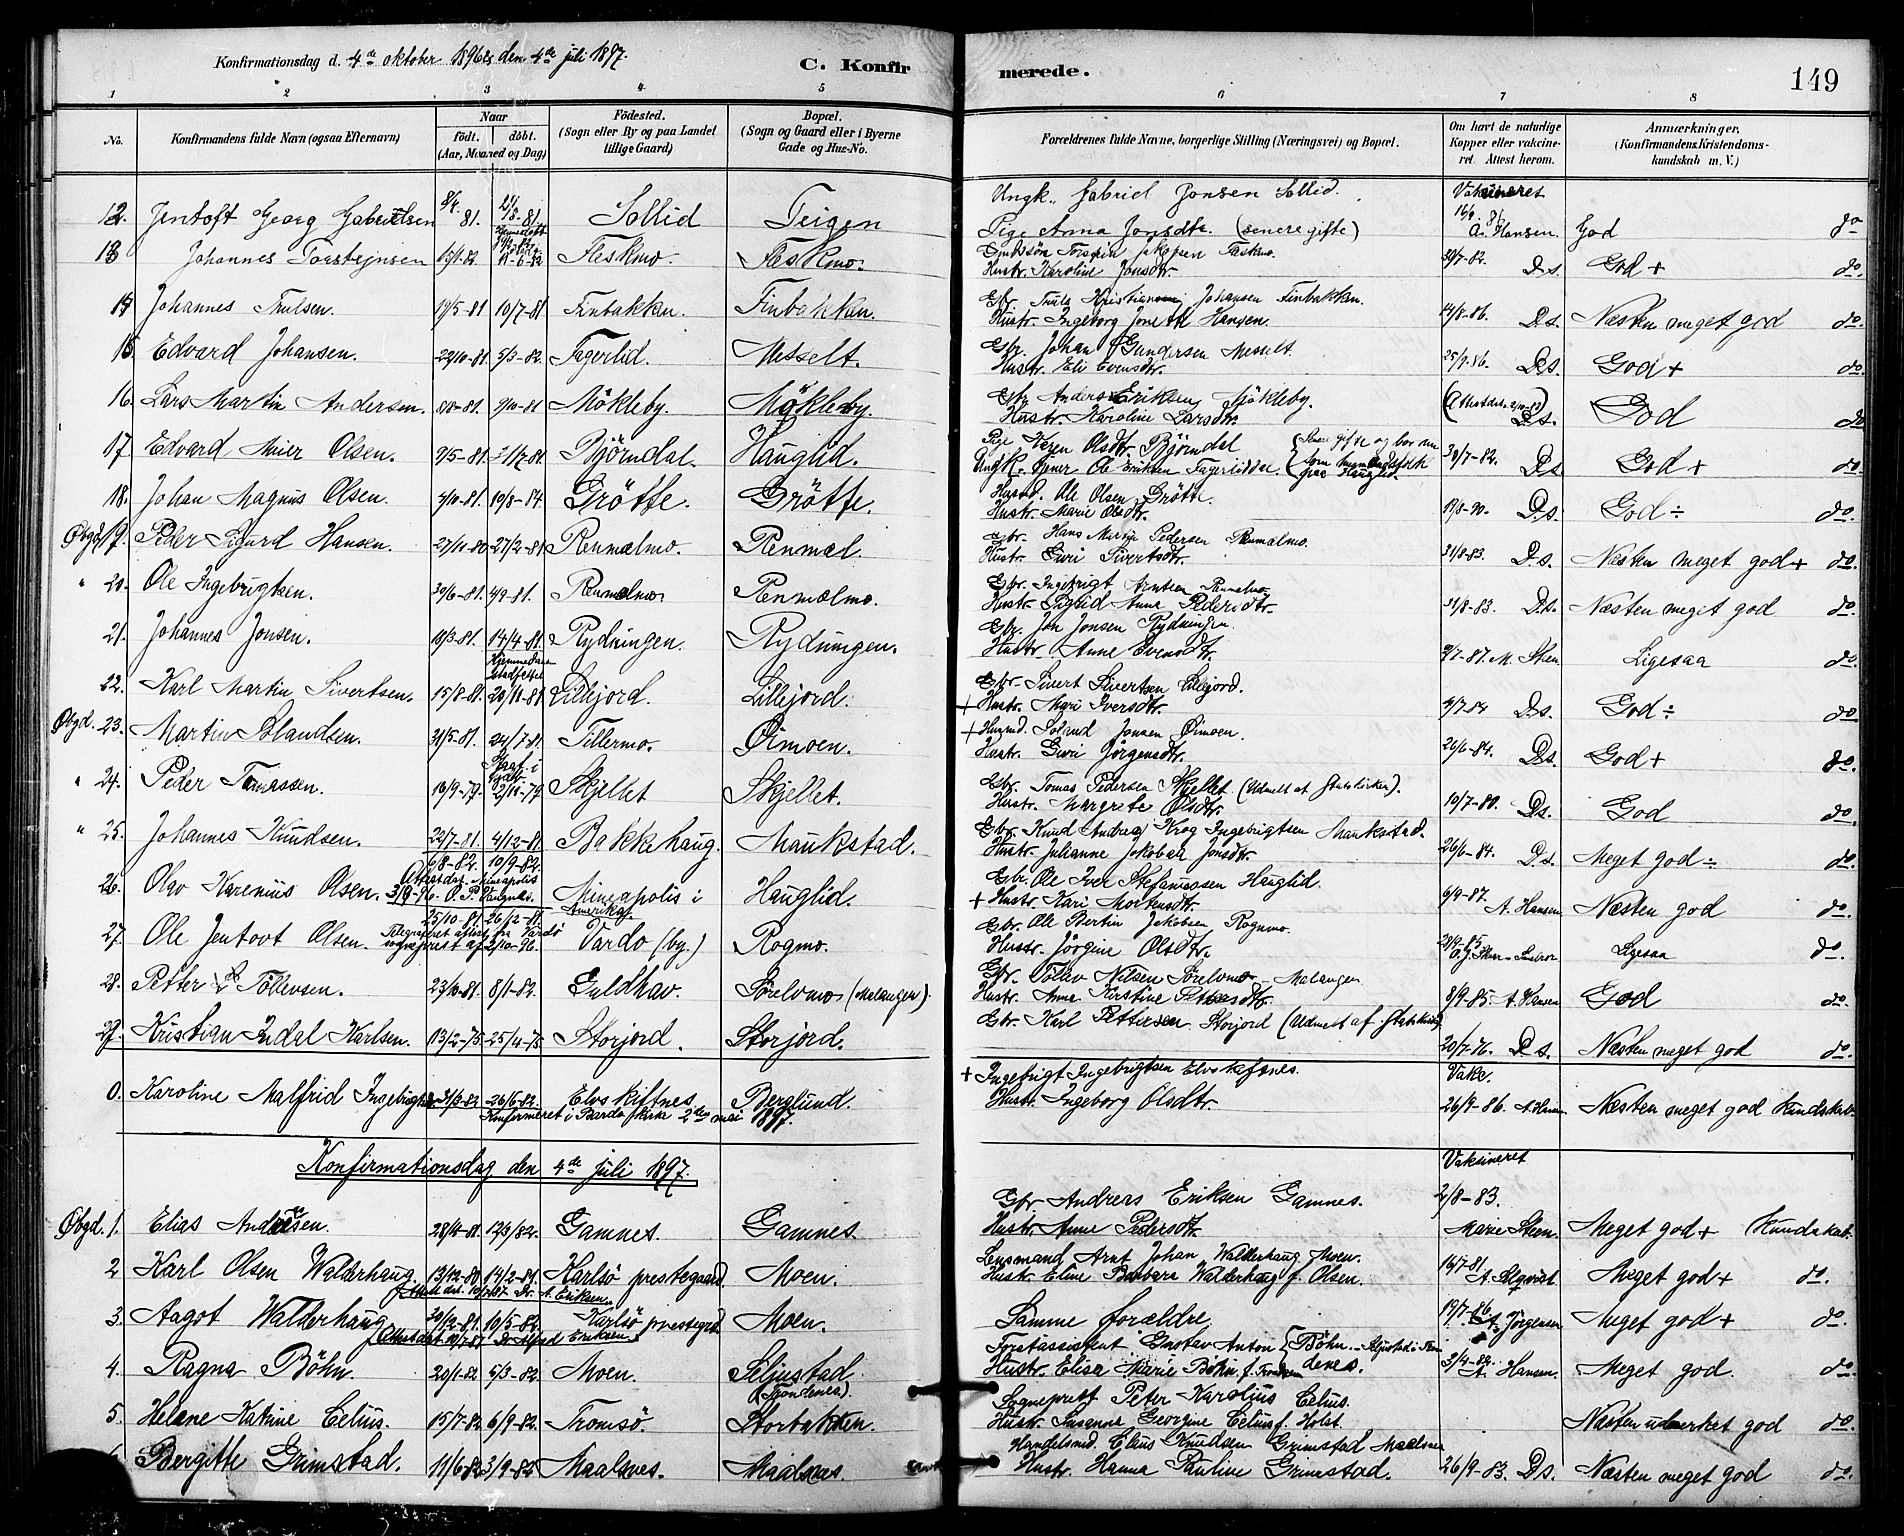 Konfirmationsdag d. 4de oktober 1896 og den 4de juli 1897.
C. Konfirmerede.
149
1 2 3 4 5 6 7 8
No. Konfirmandens fulde Navn (ogsaa Efternavn) Naar født. døbt. (Aar, Maaned og Dag) Fødested. (Sogn eller By og paa Landet tillige Gaard) Bopæl. (Sogn og Gaard eller i Byerne Gade og Hus-No. Forældrenes fulde Navne, borgerlige Stilling (Næringsvei) og Bopæl. Om havt de naturlige Kopper eller vakcineret. Attest herom. Anmærkninger. (Konfirmandens Kristendomskundskab m. V.)
12. Jentoft Georg Gabrielsen 8/4 81. 21/8-81. Sollid Teigen Ungk. Gabriel Jonsen Sollid. Vaksineret
Pige Anna Jonsdtr. (senere gifte) A. Hansen. God do
13 Johannes Torstejnsen Fleskmo. Fleskmo. 30/7-82. Ds. God + do.
Hustr. Karoline Jonsdtr.
14 Johannes Trulsen. 17/5-81 10/7-81 Finbakken. Finbakken. Gbr. Truls Kristian Johansen Finbakken.
Hustr. Ingeborg Jonette Hansen. 14/8-86. Ds. Næsten meget god do.
15. Edvard Johansen. 22/10-81. 5/3-82. Fagerlid. Messelt. Gbr. Johan Gundersen Messelt.
Hustr. Eli Evensdtr. 25/9-86. Ds. God + do.
16. Lars Martin Andersen. 8/8-81. 9/10-81 Mökleby. Mökleby. Gbr. Anders Eriksen Mökleby.
Hustr. Karoline Larsdtr. Ds. God do
17. Edvard Meier Olsen. 9/5-81. 31/7-81. Björndal. Hauglid. Pige Karen Olsdtr. Björndal {Senere gifte og bor nu
Ungk. Ole Eriksen som husmandsfolk paa Hauglid. 30/7-82. Ds. God + do.
18. Johan Magnus Olsen. 3/10-81. 10/8-84 Grötte. Grötte. Husmd. Ole Olsen Grötte.
Hustr. Marie Olsdtr. 19/8-90. Ds. God ÷ do.
Øbgd. 19. Peder Sigurd Hansen. 27/11-80 27/2-81 Renmælmo. Renmæl. Gbr. Hans Martin Pedersen Renmælmo.
Hustr. Guri Sivertsdtr. 31/8-83. Ds. Næsten meget god + do.
" 20. Ole Ingebrigtsen. 30/6-81. 4/9-81. Renmælmo. Renmælmo. Gbr. Ingebrigt Arntsen Renmælmo
Hustr. Sigrid Anna Pedersdtr. 31/8-83. Ds. Næsten meget god do.
21. Johannes Jonsen. 19/3-81. 14/4-81. Rydningen. Rydningen. Gbr. Jon Jonsen Rydningen.
Hustr. Anne Evensdtr. 9/7-87. M. Steen Ligesaa do.
22. Karl Martin Sivertsen. 15/8-81. Hjemmedøbt stadfæstet 20/11-81 Lillejord. Lillejord. Gbr. Sivert Sivertsen Lillejord.
+ Hustr. Mari Iversdtr. 9/7 84 Ds. God ÷ do
Øbgd. 23. Martin Solandsen. 31/5-81. 24/7-81. Tillermo. Øimoen. + Husmd. Jonsen Øimoen.
Hustr. Guri Jörgensdtr. 26/6-84. Ds. God + do.
" 24. Peder Tomassen. 16/9-79. 2/11-79. Skjellet Skjellet. Gbr. Tomas Pedersen Skjellet (Udmelt af Statskirken).
Hustr. Margrete Olsdtr. 10/7-80. Ds. God do.
" 25. Johannes Knudsen. 22/7-81. 4/12-81. Bakkehaug. Maukstad. Gbr. Knud Andreas Krog Ingebrigtsen Maukstad.
Hustr. Julianne Jakobæa Jonsdtr. 26/6-84. Ds. Meget god ÷ do.
26. Olav Karenius Olsen. 6/8-82. 10/9-82. Attest dat. Mineapolis 3/9-96. O. P. Vangsnes. Mineapolis i Amerika. Hauglid. Gbr. Ole Iver Stefanussen Hauglid.
+ Hustr. Kari Mortensdtr. 6/9-87. A. Hansen Næsten god do.
27. Ole Jentovt Olsen. 25/10-81 26/12-81 Telegraferet attest fra Vardø sogneprest af 2/10-96. Vardø (by.) Rogmo. Gbr. Ole Bertin Jakobsen Rogmo.
Hustr. Jörgine Olsdtr. Ligesaa do.
28. Petter L. Töllevsen. 23/10-81. 8/1-82. Guldhav. Sörelvmo (Malangen). Gbr. Tölev Nilsen Sörelvmo Malangen
Hustr. Anna Kirstine Pettersdtr. 8/9-85. A. Hansen God do.
29. Kristian Indal Karlsen. 13/2-75. 25/4-75 Storjord. Storjord. Gbr. Karl Pettersen Storjord (Udmelt af Statskirken)
20/7-76. Ds. Næsten meget god do.
0. Karoline Malfrid Ingebrigtsen 31/3-82 26/6-82. Elvskiftnes. Berglund. + Ingebrigt Ingebrigtsen Elvskiftnes. Vakc.
Konfirmeret i Bardo kirke 2den mai 1897. Hustr. Ingeborg Olsdtr. 26/9-86. A. Hansen Næsten meget god Kundskab
Konfirmationsdag den 4de juli 1897. Vaksineret
Øbgd. 1. Elias Andresen. 28/4-81. 12/3/82. Gamnes. Gamnes. Gbr. Andreas Eriksen Gamnes. 2/8-83.
Hustr. Anne Pedersdtr. Marie Steen Meget god + Kundskab.
2 Karl Olsen Walderhaug. 13/12-80 14/2-81. Karlsö prestegaard Moen. Lensmand Arnt Johan Walderhaug Moen.
Dr. A. Eriksen. Hustr. Eline Barbara Walderhaug f. Olsen. 16/7-81. Meget god + do.
3. Aagot Walderhaug 20/12-81. 10/5-82 Karlsö prestegrd. Moen. Samme forældre. 19/7-86 A. Jörgensen Meget god + do.
4. Ragna Böhn. 20/1-82 5/3-82. Moen. Seljestad (Trondenes). Forstassistent Gustav Anton Böhn Seljestad i Trondenes.
Hustr. Elisa Marie Böhn f. 3/4-84. A. Hansen. Meget god. do.
5. Helene Katrine Celius. 15/7-82. 6/9-82. Tromsö. Storbakken. Sogneprest Peter Karolius Celius.
Hustr. Susanna Georgine Celius f. Holst. Næsten udmerket god do.
Bergitte Grimstad. 11/6-82. 3/9-82 Maalsnes. Maalsnes. Handelsmd. Claus Knudsen Grimstad Maalsnes
Hustr. Hanna Pauline Grimstad. 26/9-83. Ds. Næsten meget god do.